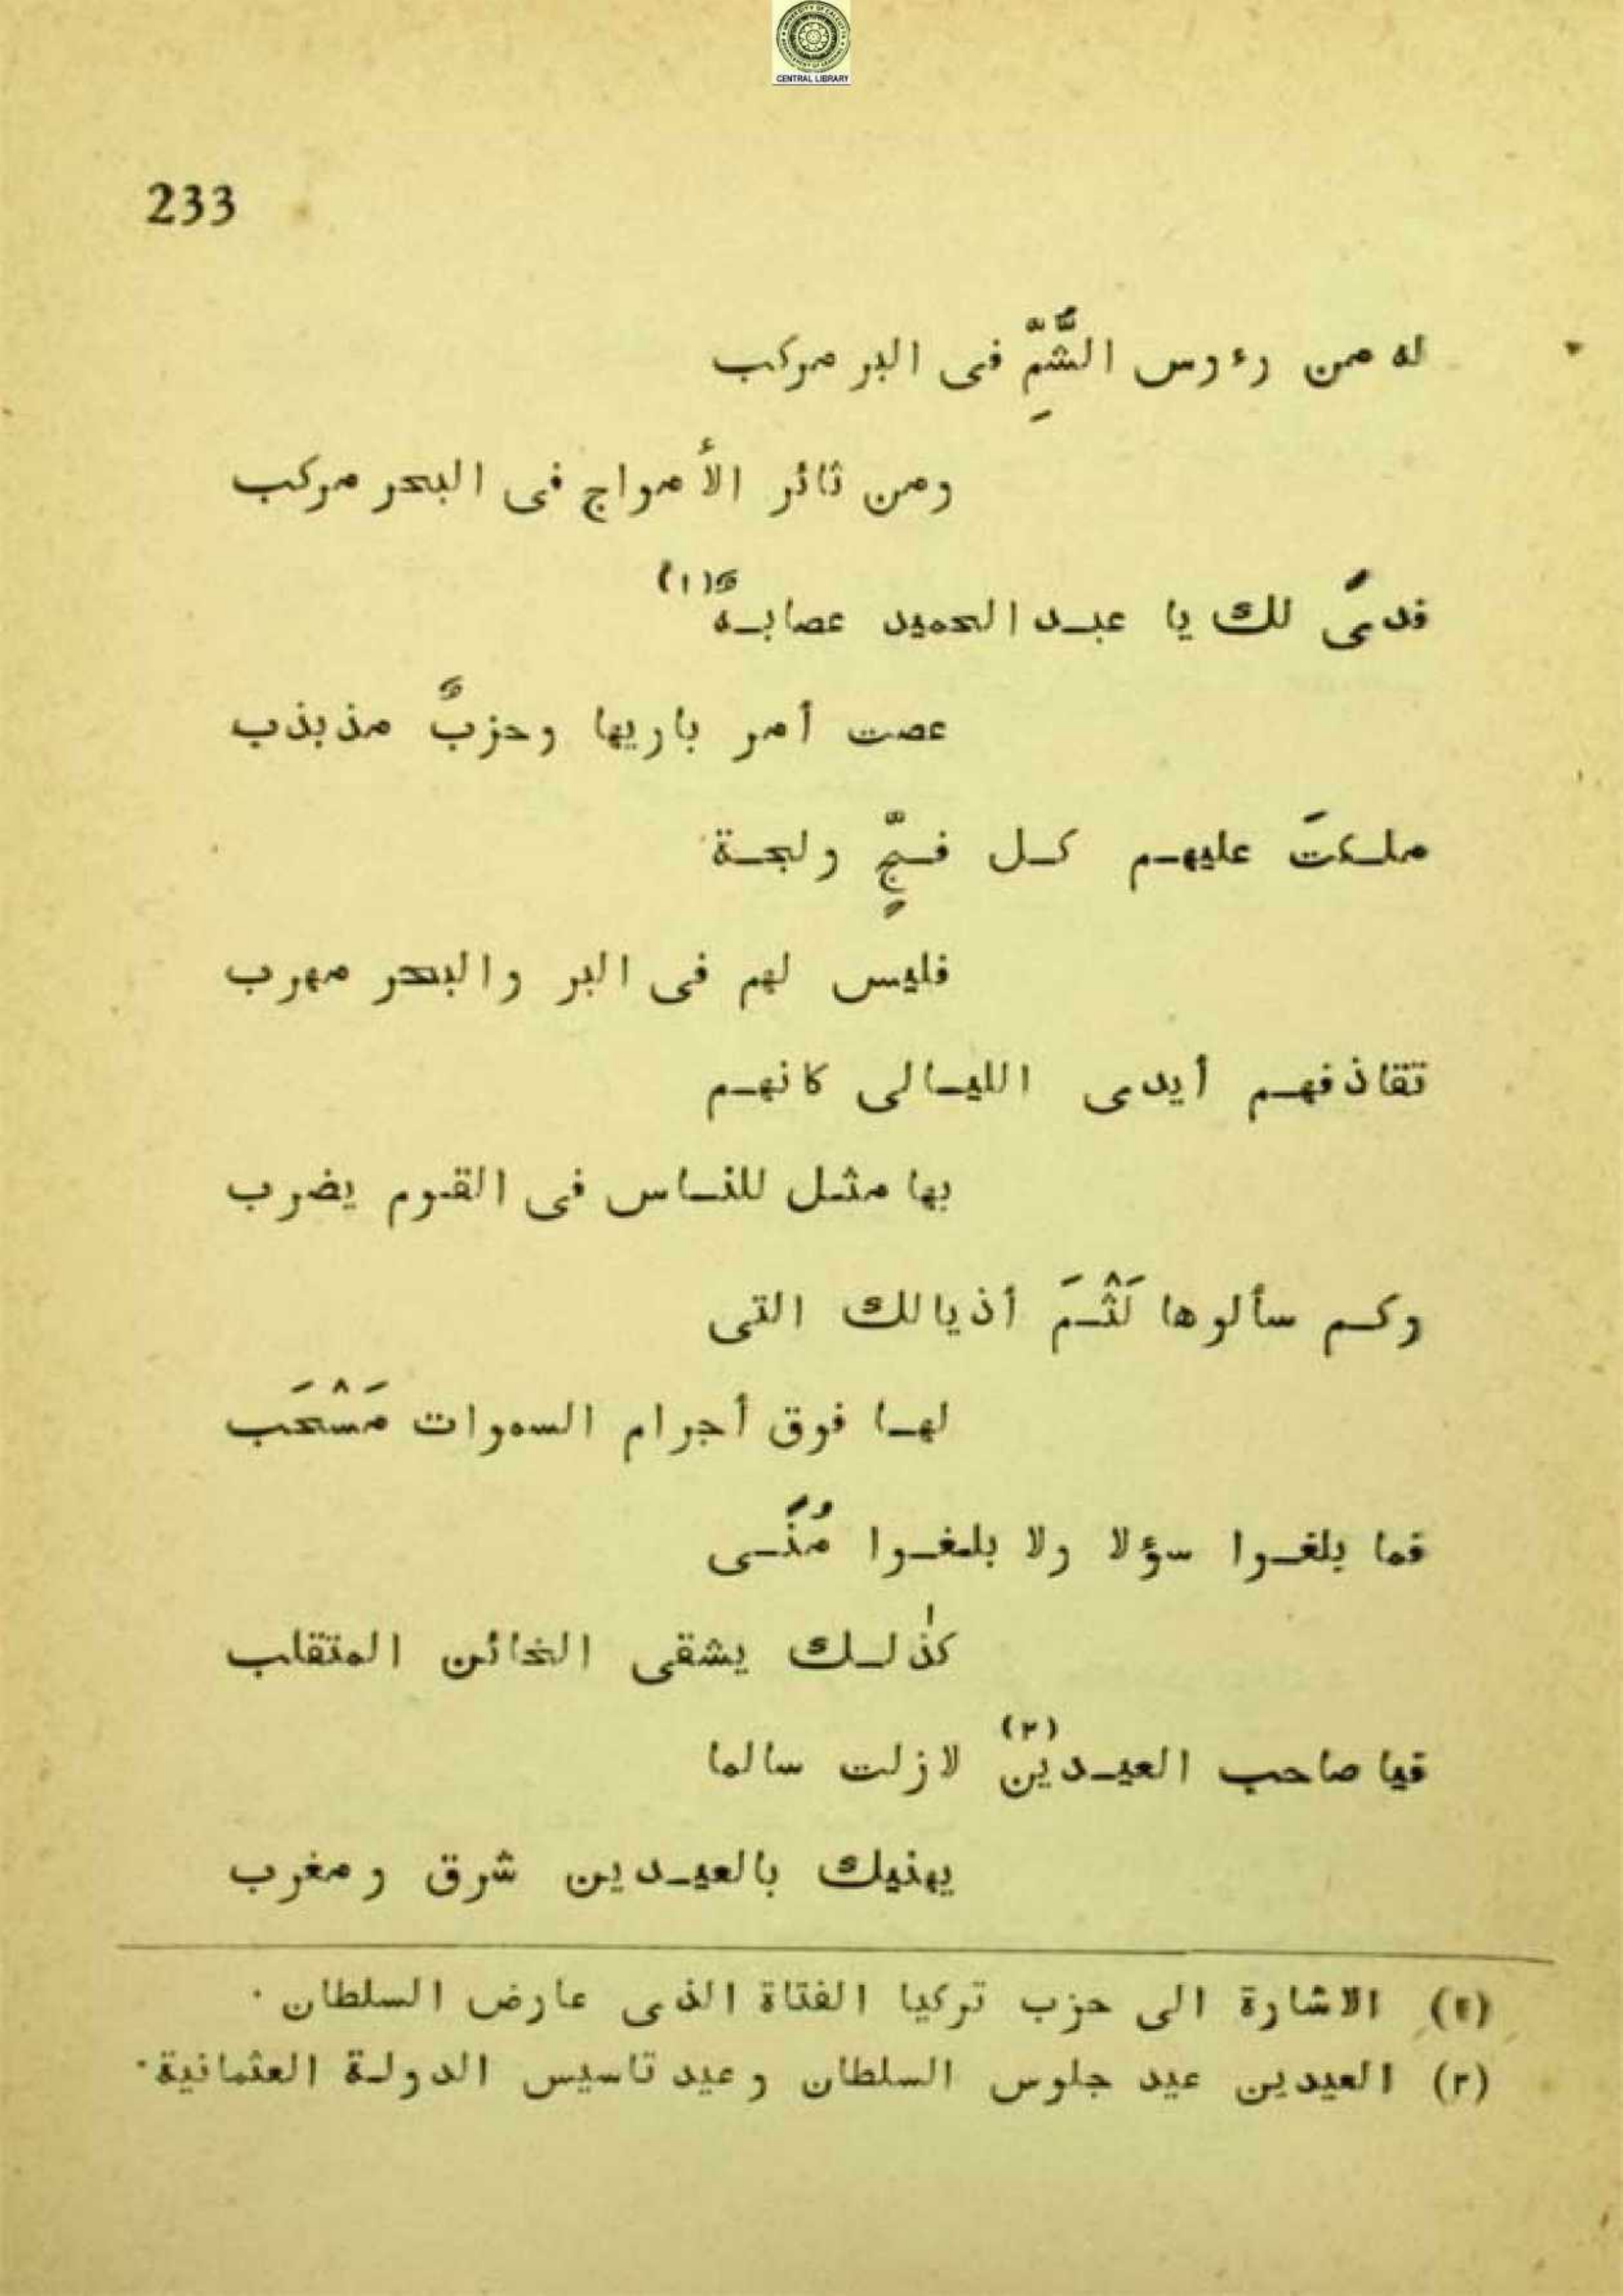 CENTRAL LIBRARY
233
له من رءوس الشُّمِّ فى البر موكب
ومن ثائر الأمواج فى البحر مركب
فدىً لك يا عبد الحميد عصابةٌ (١)
عصت أمر باريها وحزبٌ مذبذب
ملكتَ عليهم كل فجٍّ ولجة
فليس لهم فى البر والبحر مهرب
تقاذفهم أيدى الليالى كانهم
بها مثل للناس فى القوم يضرب
وكم سألوها لَثْمَ أذيالك التى
لها فوق أجرام السموات مَسْحَب
فما بلغوا سؤلا ولا بلغوا مُنًى
كذٰلك يشقى الخائن المتقلب
فيا صاحب العيدين (٢) لازلت سالما
يهنيك بالعيدين شرق ومغرب
(١) الاشارة الى حزب تركيا الفتاة الذى عارض السلطان ٠
(٢) العيدين عيد جلوس السلطان وعيد تاسيس الدولة العثمانية ٠